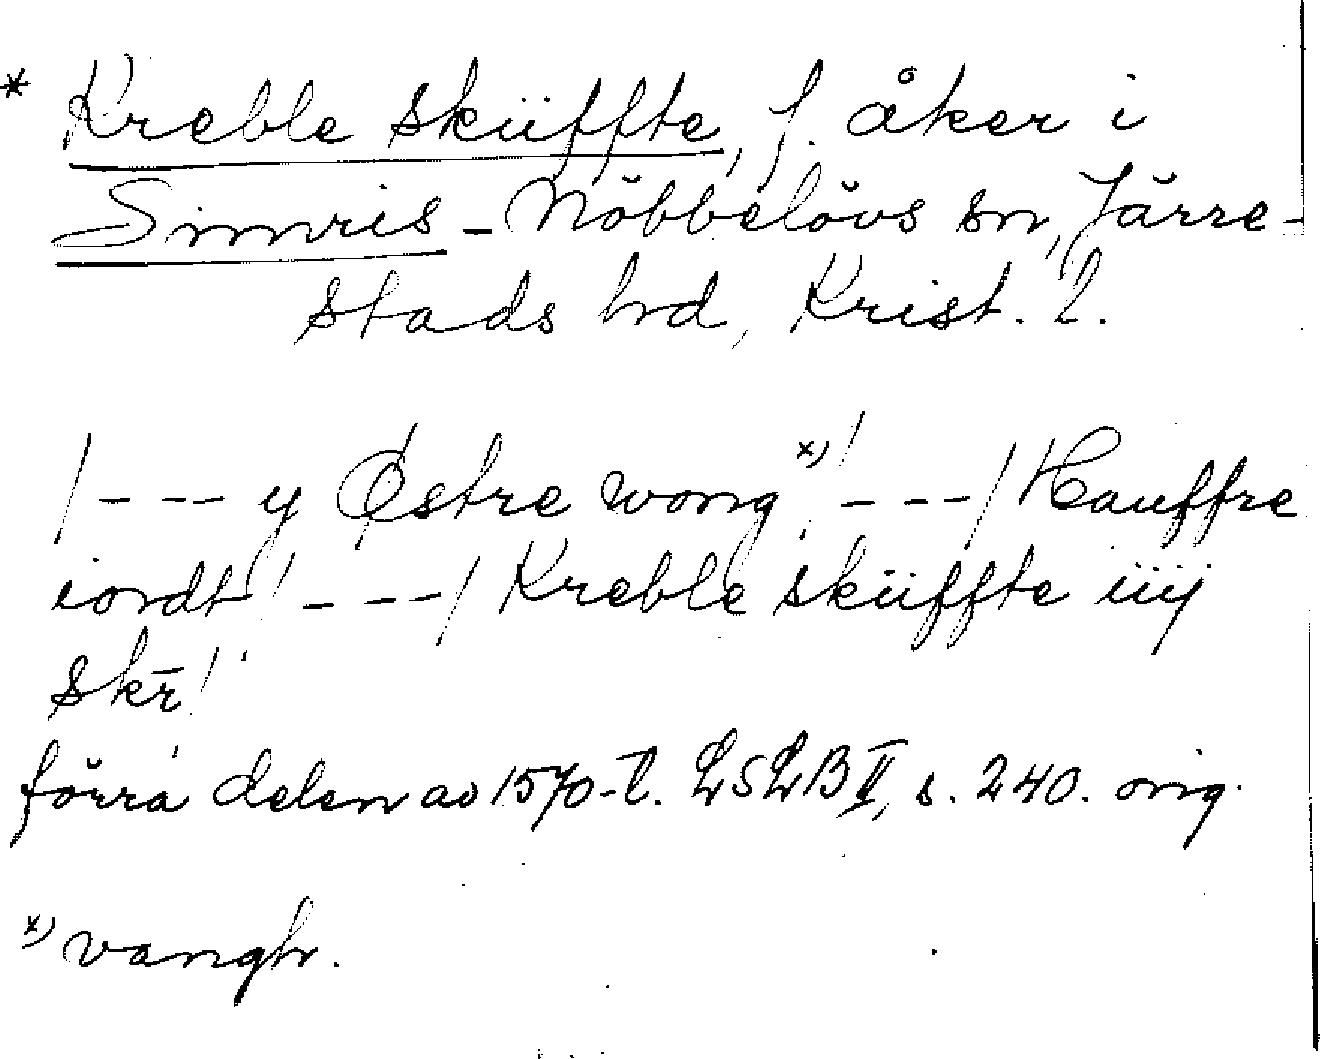 * Kreble skiiffte, f. åker i
Simris - Nöbbelövs sn, Järre-
stads hd, Krist. l.
/ - - - y Østre wong x) / - - - / Hauffre
iordt / - - - / Kreble skiiffte iiij
skr̄ /
förra delen av 1570-t. LSLB II, s. 240. orig.
x) vangh.